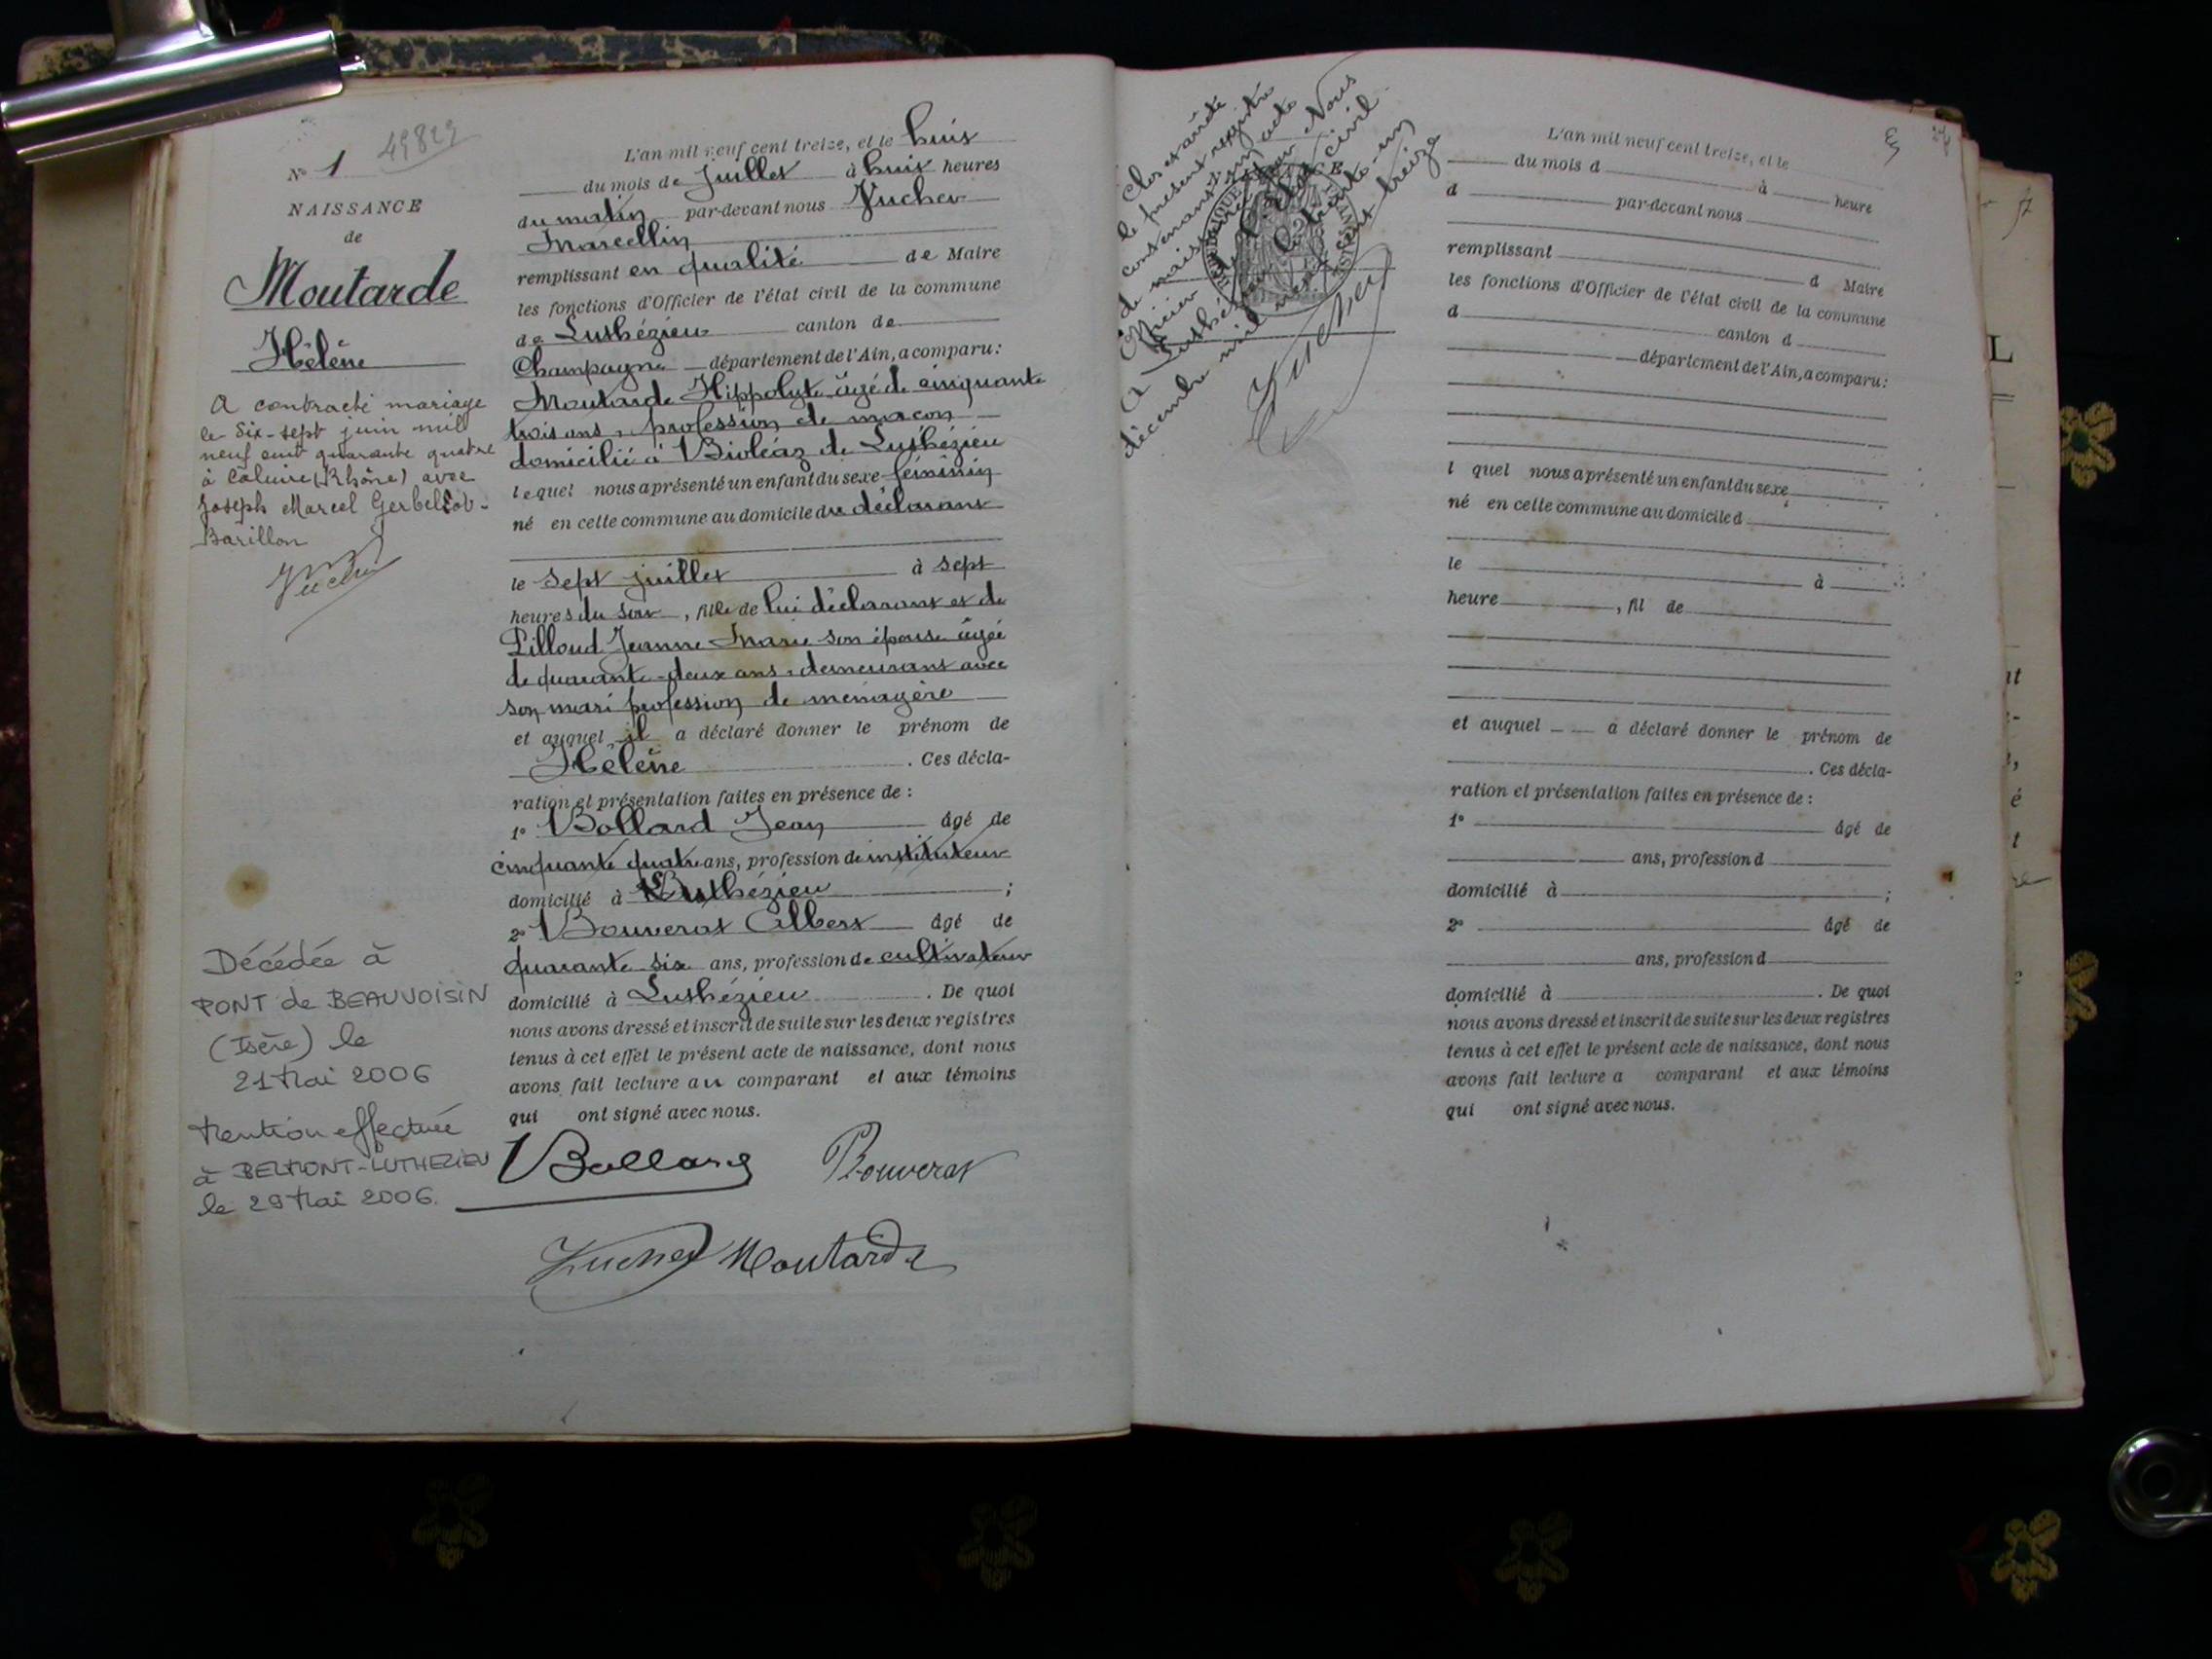 N° 1
49829
NAISSANCE
de
Moutarde
Hélène
A contracté mariage
le dix-sept juin mil
neuf cent quarante quatre
à Caluire (Rhône) avec
Joseph Marcel Gerbellot-
Barillon
Vucher
Décédée à
PONT de BEAUVOISIN
(Isère) le
21 Mai 2006
Mention effectuée
à BELMONT-LUTHEZIEU
le 29 Mai 2006.
L'an mil neuf cent treize, et le huit
du mois de juillet à huit heures
du matin par-devant nous Vucher
Marcellin
remplissant en qualité de Maire
les fonctions d'Officier de l'état civil de la commune
de Luthézieu canton de
Champagne département de l'Ain, a comparu:
Moutarde Hippolyte âgé de cinquante
trois ans, profession de maçon
domicilié à Bioléaz de Luthézieu
lequel nous a présenté un enfant du sexe féminin
né en cette commune au domicile du déclarant
le sept juillet à sept
heures du soir, fille de lui déclarant et de
Pilloud Jeanne Marie son épouse âgée
de quarante-deux ans, demeurant avec
son mari profession de ménagère
et auquel il a déclaré donner le prénom de
Hélène. Ces décla-
ration et présentation faites en présence de :
1° Bollard Jean âgé de
cinquante quatre ans, profession de instituteur
domicilié à Luthézieu ;
2° Bouverat Albert âgé de
quarante six ans, profession de cultivateur
domicilié à Luthézieu. De quoi
nous avons dressé et inscrit de suite sur les deux registres
tenus à cet effet le présent acte de naissance, dont nous
avons fait lecture au comparant et aux témoins
qui ont signé avec nous.
Bollard Bouverat
Vucher Moutarde
Clos et arrêté
le présent registre
contenant un acte
de naissance par Nous
Officier de l'Etat civil
A Luthézieu le trente-un
décembre mil neuf cent treize
Vucher
L'an mil neuf cent treize, et le
du mois d à heure
d par-devant nous
remplissant d Maire
les fonctions d'Officier de l'état civil de la commune
d canton d
département de l'Ain, a comparu:
l quel nous a présenté un enfant du sexe
né en cette commune au domicile d
le à
heure , fil de
et auquel a déclaré donner le prénom de
. Ces décla-
ration et présentation faites en présence de :
1° âgé de
ans, profession d
domicilié à ;
2° âgé de
ans, profession d
domicilié à . De quoi
nous avons dressé et inscrit de suite sur les deux registres
tenus à cet effet le présent acte de naissance, dont nous
avons fait lecture a comparant et aux témoins
qui ont signé avec nous.